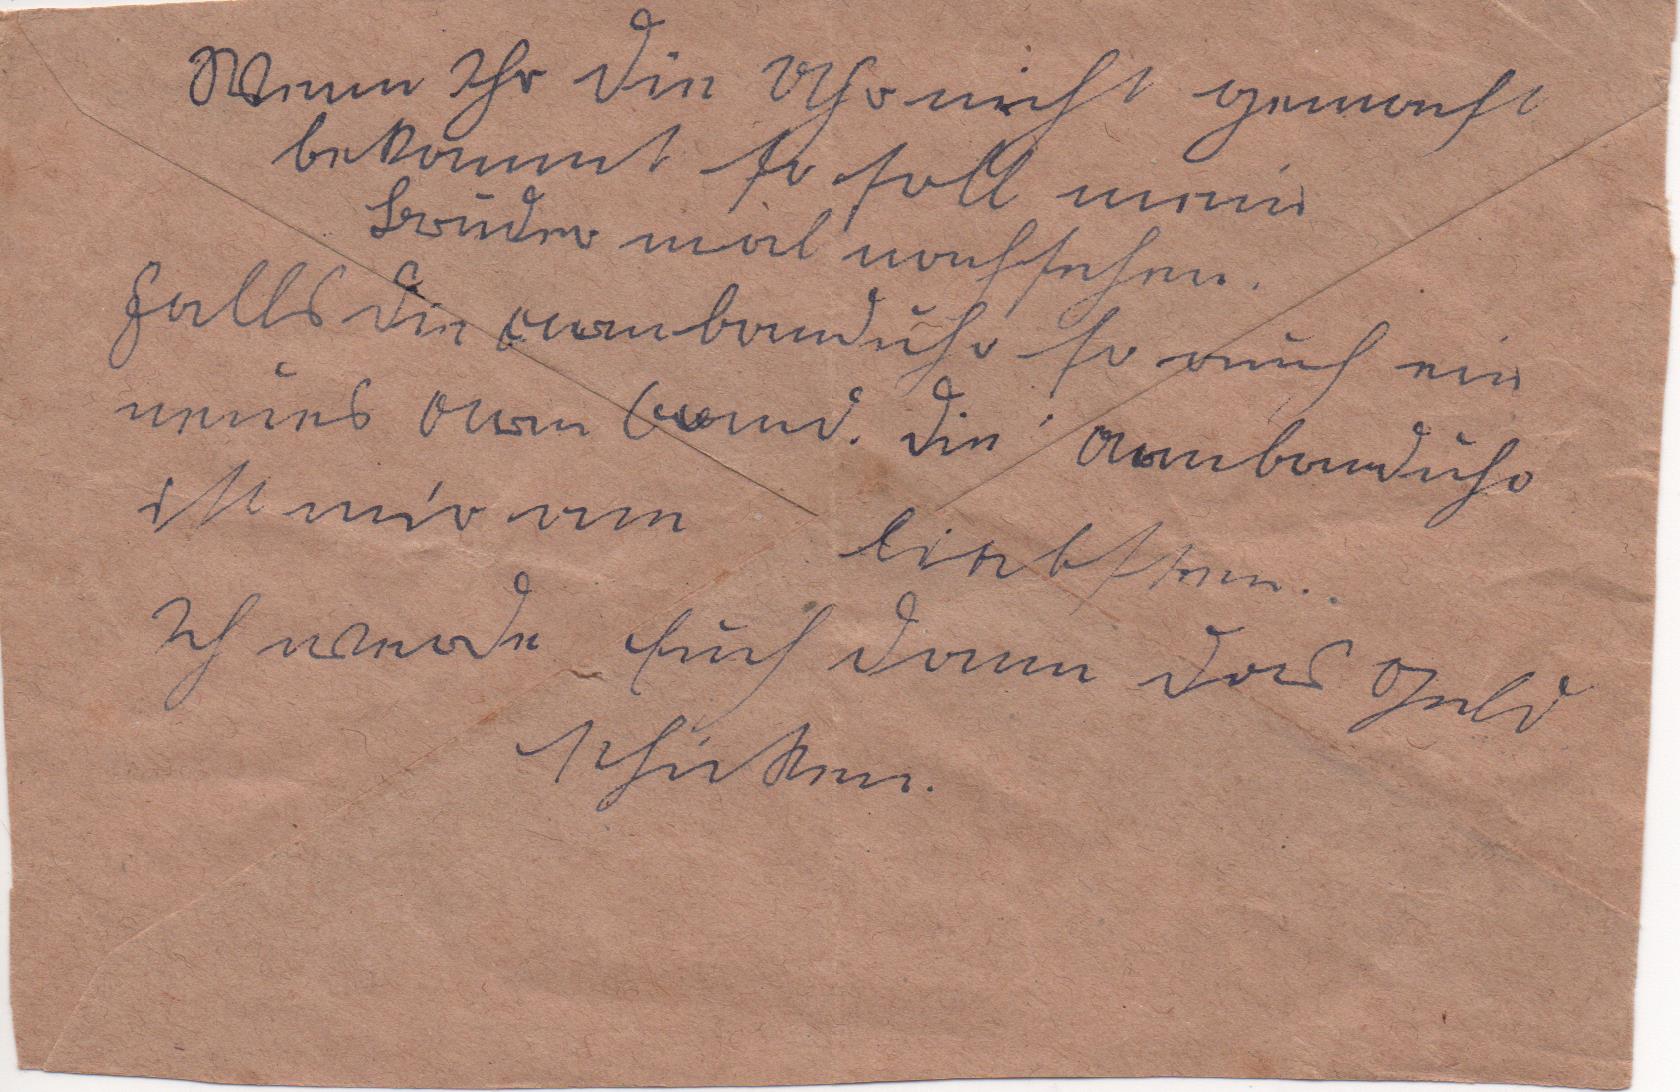 Wenn Ihr die Uhr nicht gemacht
bekommt so soll mein
Bruder mal nachsehen.
Falls die armbanduhr so auch ein
neues arm band. die Armbanduhr
ist mir am liebsten..
Ich werde Euch dann das Geld
schicken.